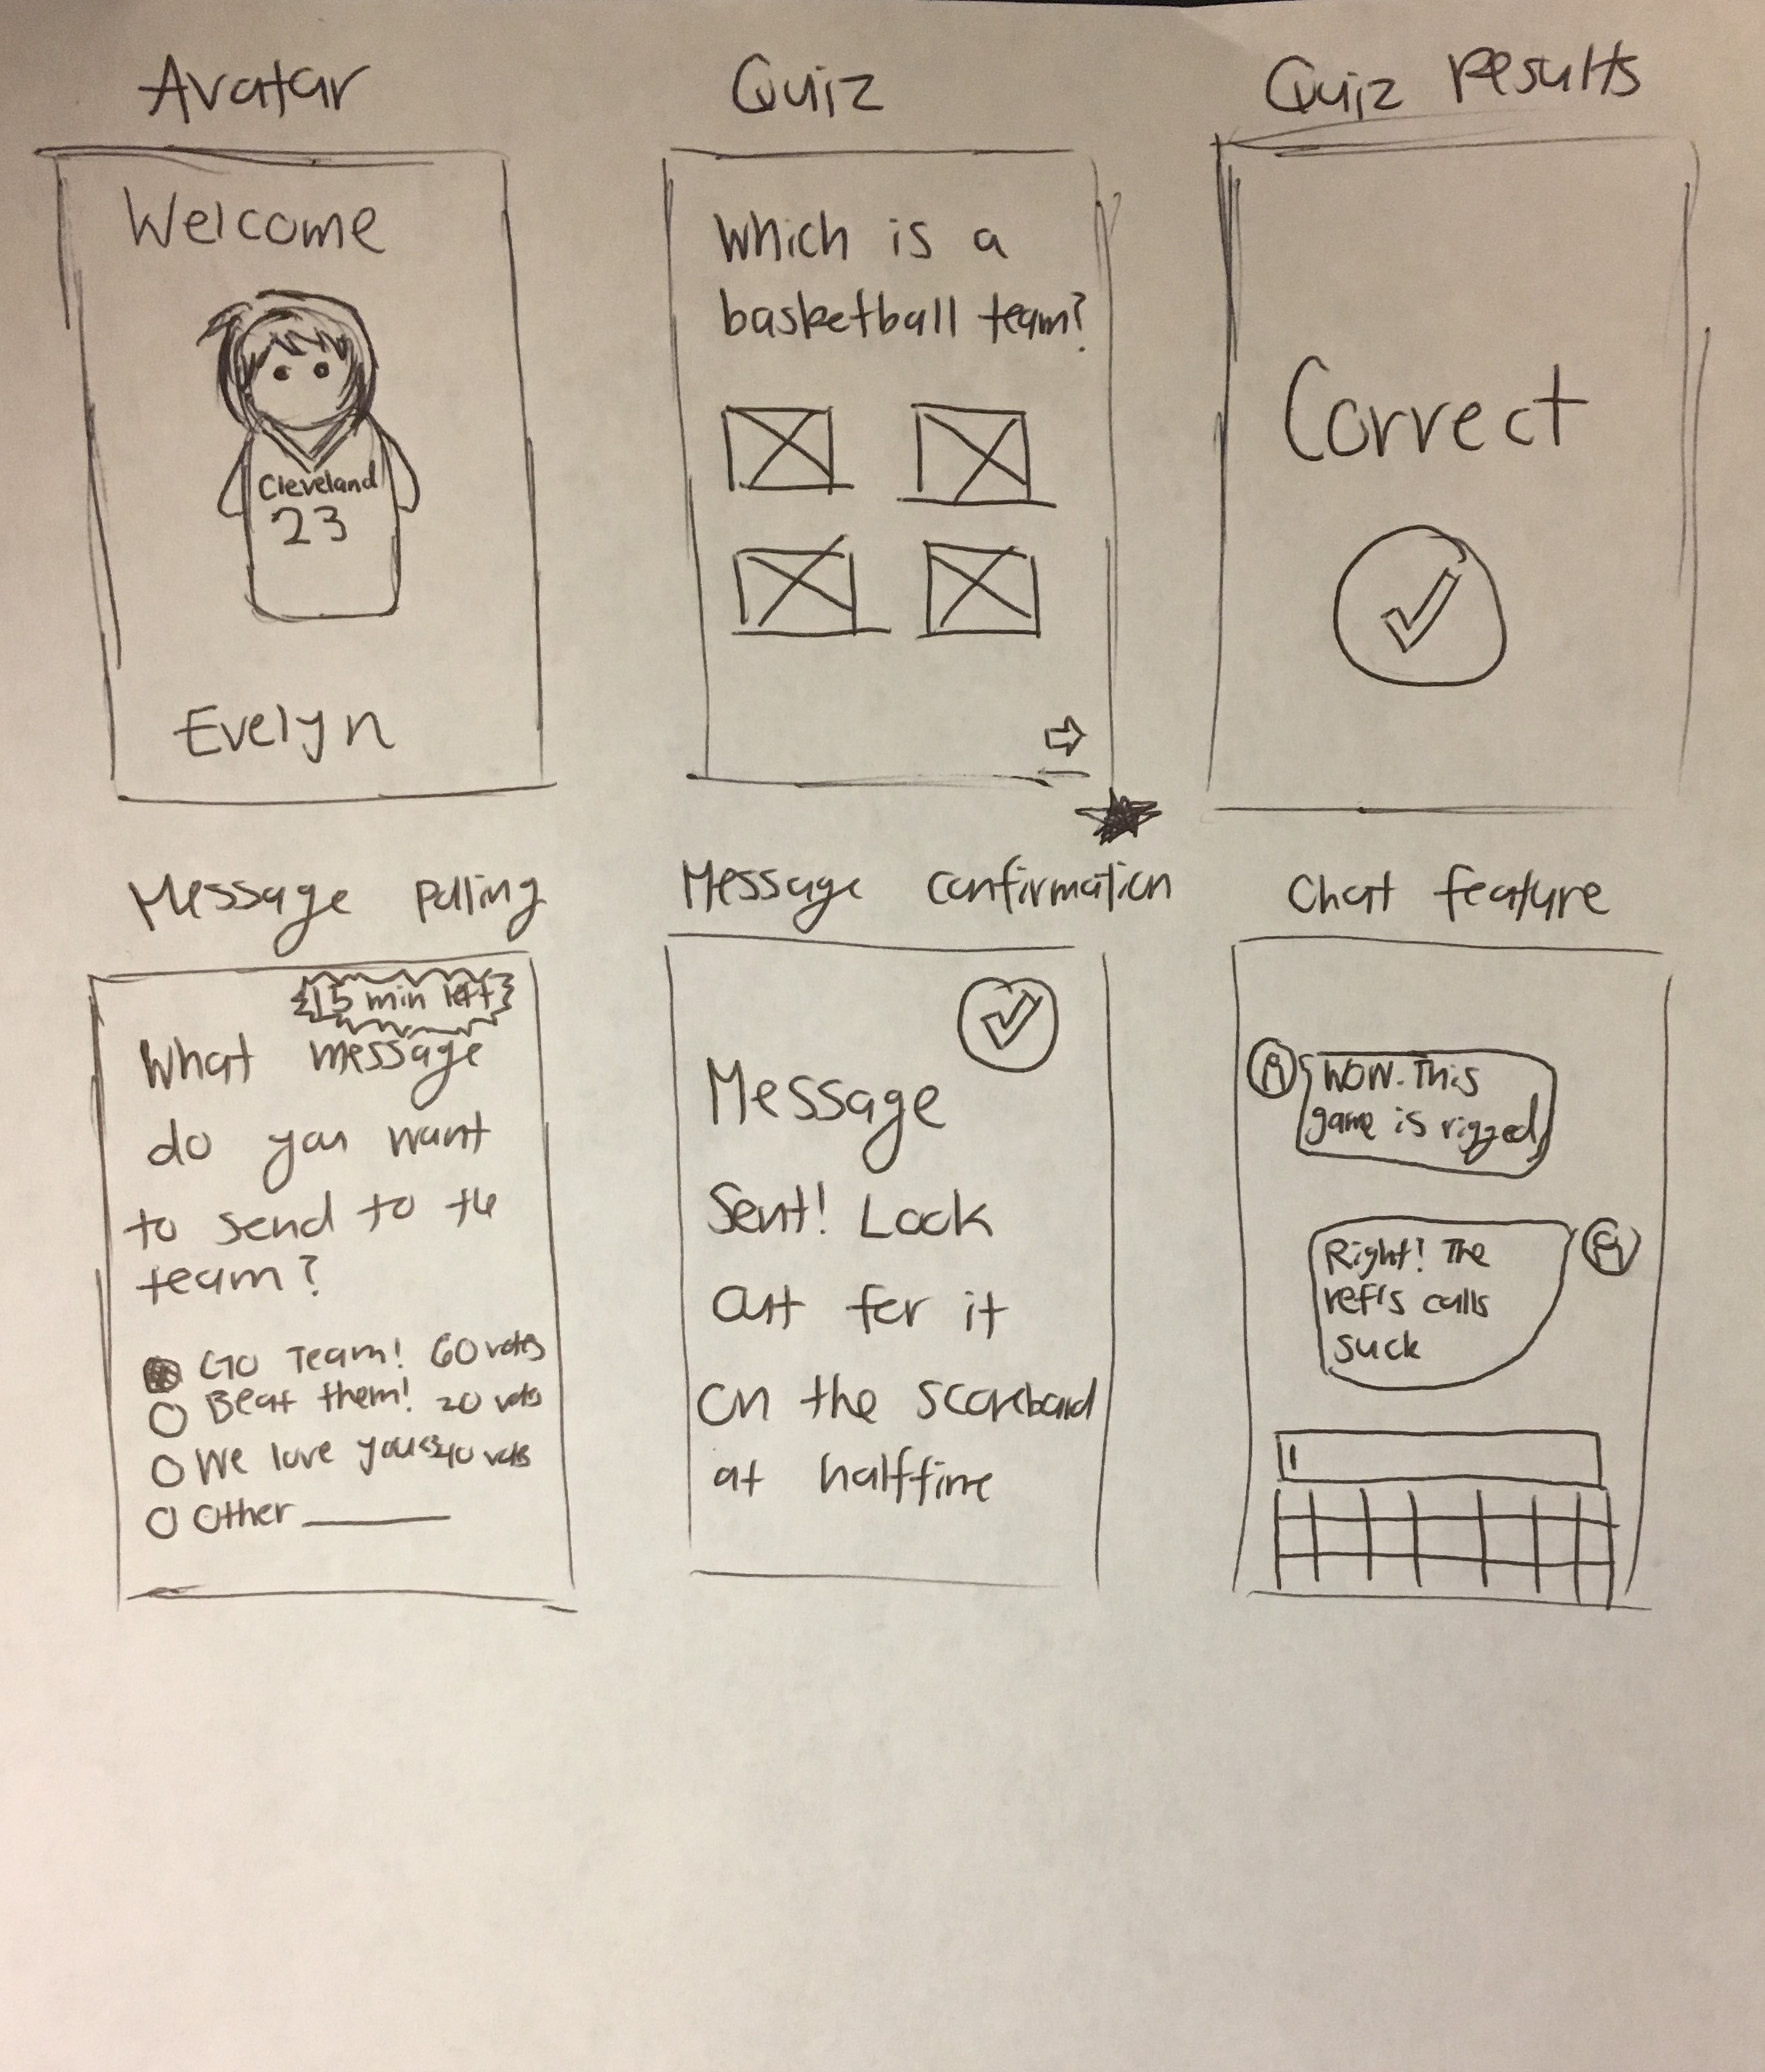 Avatar
Quiz
Quiz Results
Welcome
Cleveland
23
Evelyn
Which is a
basketball team?
Correct
Message Polling
Message Confirmation
Chat feature
15 min left
What message
do you want
to send to the
team?
Go Team! 60 votes
Beat them! 20 votes
We love you 40 votes
Other
Message
Sent! Look
out for it
on the scoreboard
at halftime
WOW. This
game is rigged
Right! The
ref's calls
suck